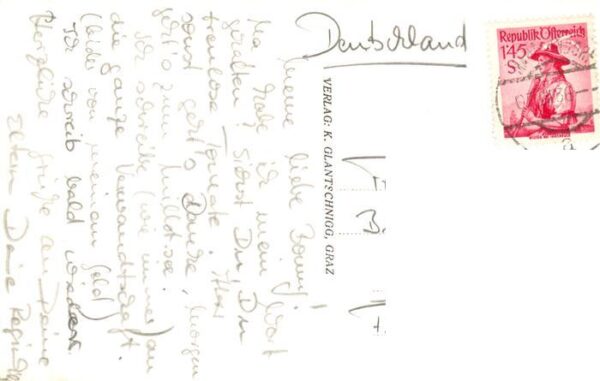 Deutschland
Republik Österreich
1·45
S
VERLAG: K. GLANTSCHNIGG, GRAZ
Na meine liebe
habe ich mein Wort
gehalten? Siehst Du Du
treulose Tomate.
sonst geht's Danke, morgen
geht's zum
Ich schreibe (wie immer) an
die ganze Verwandtschaft
(leider von meinem Geld)
Ich schreib bald wieder.
Herzliche Grüße an Deine
Eltern Deine